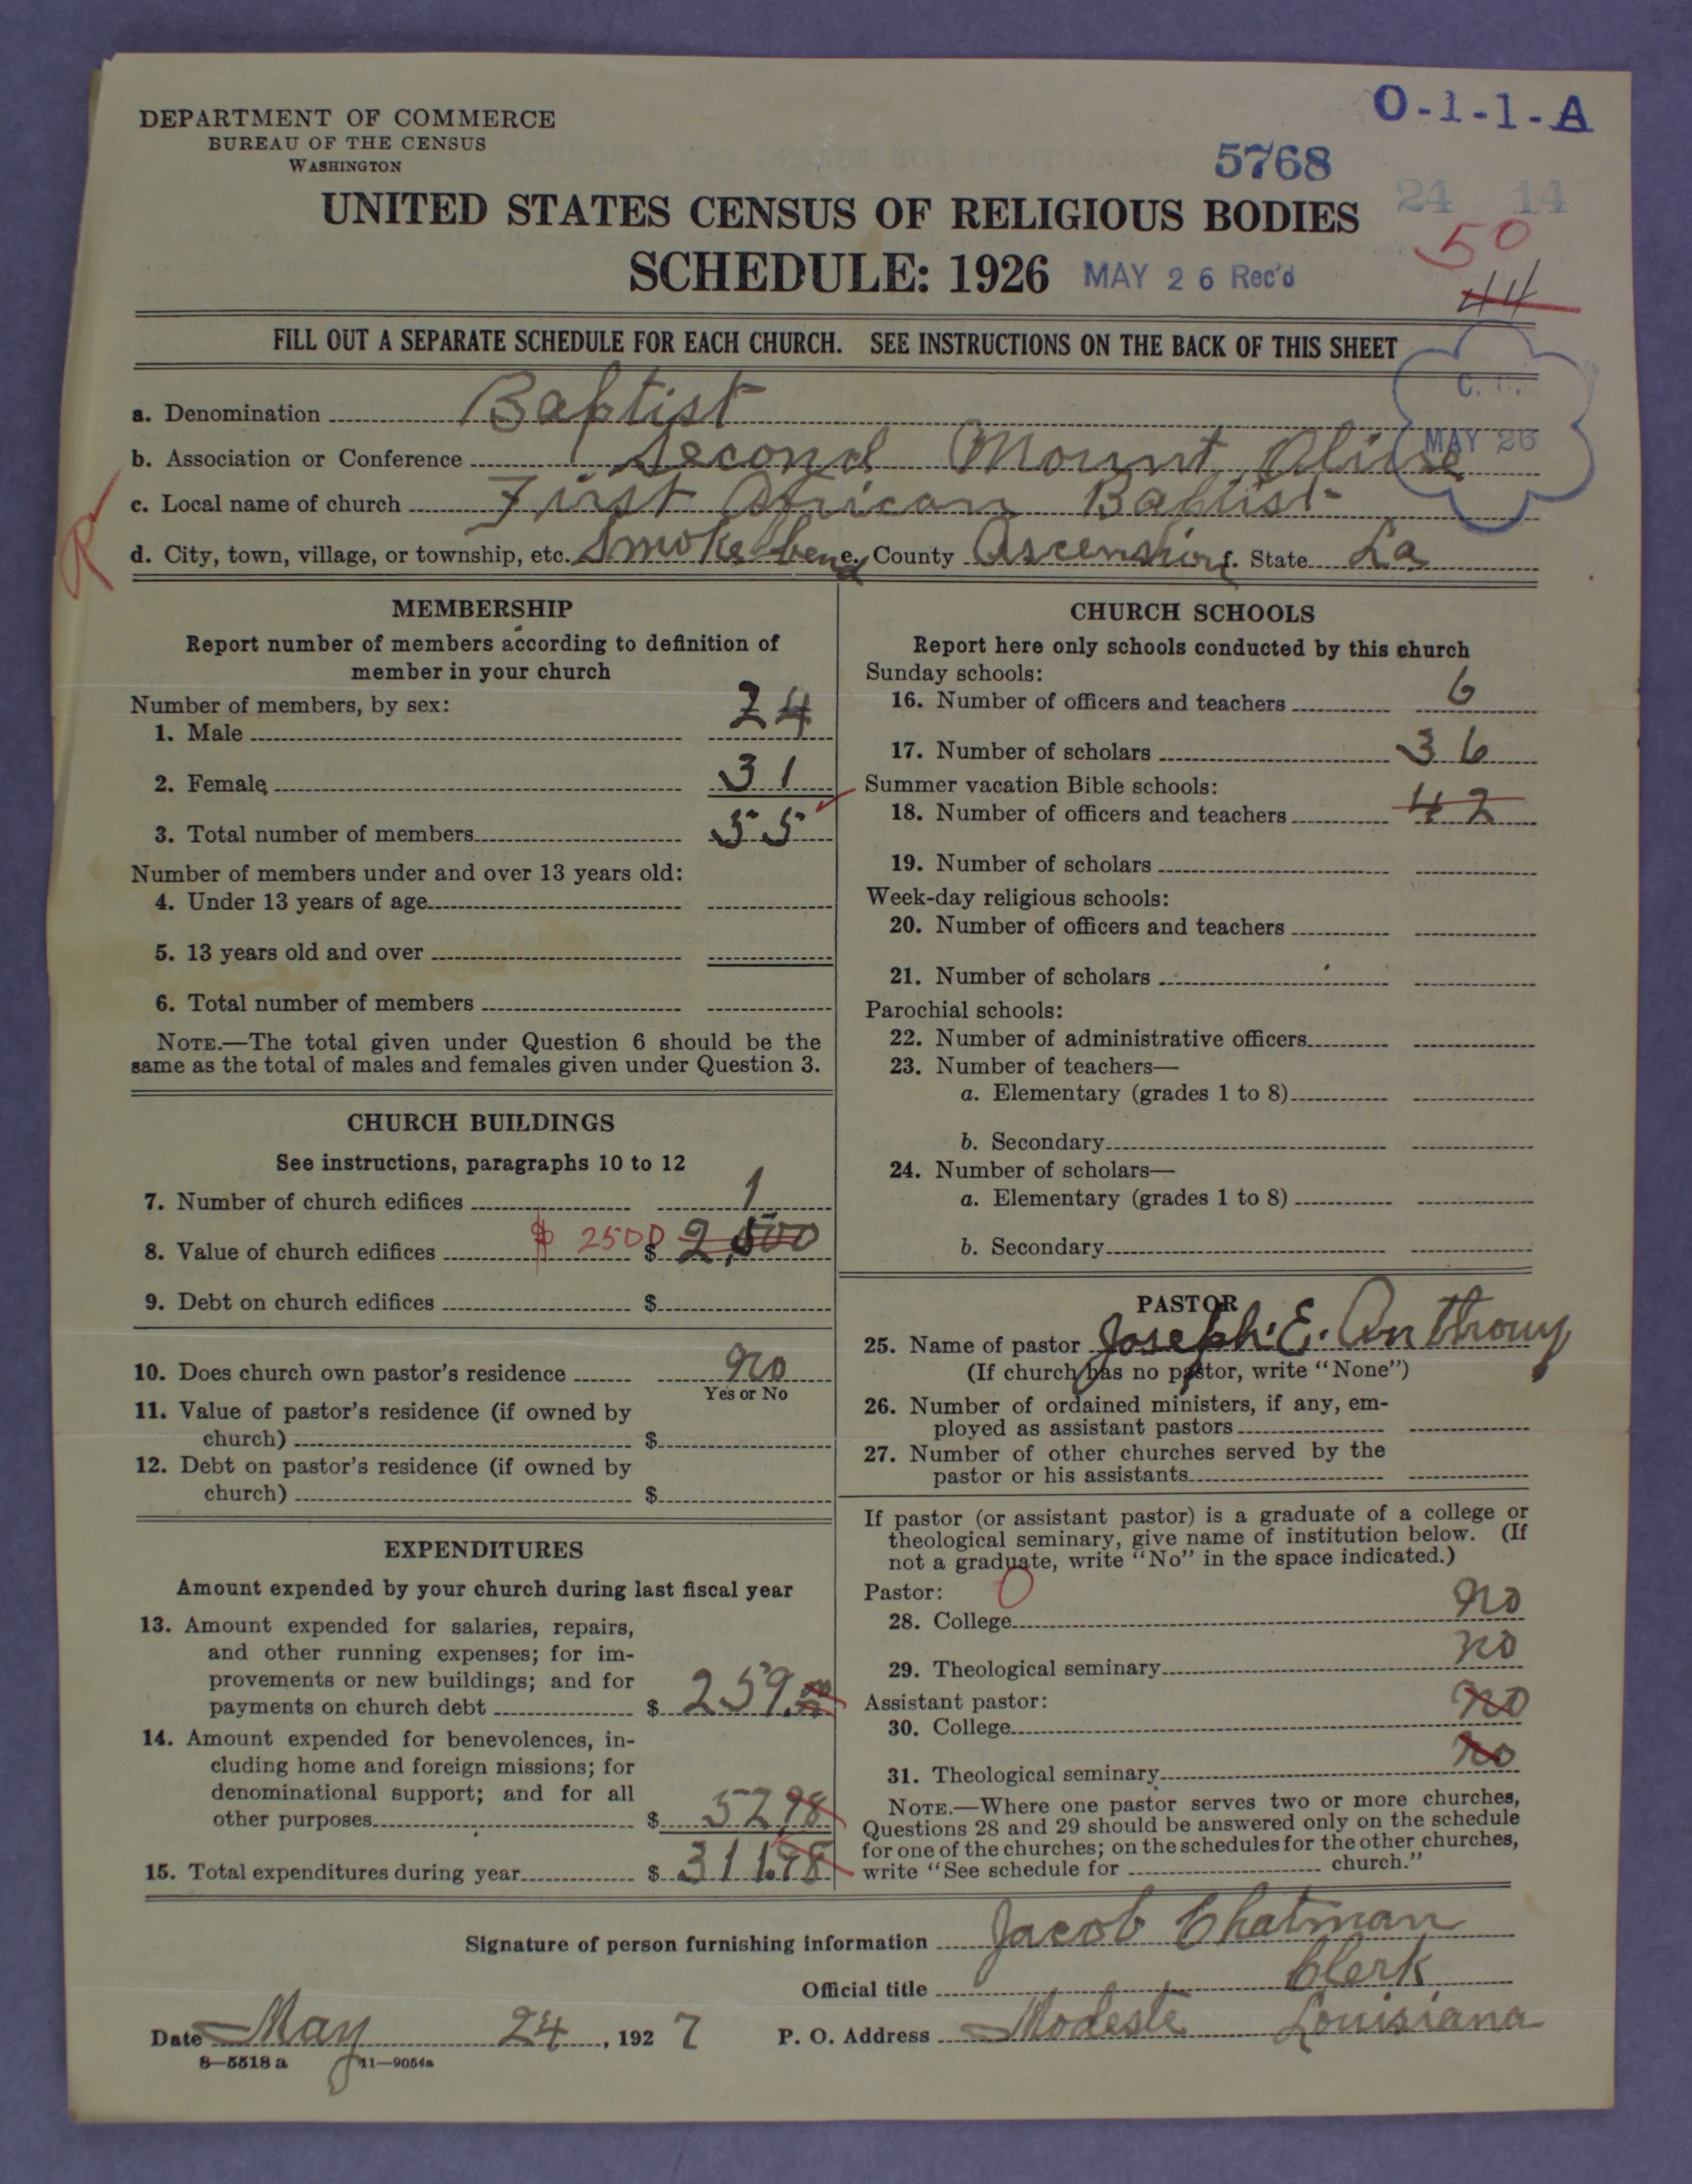 DEPARTMENT OF COMMERCE
BUREAU OF THE CENSUS
WASHINGTON
O-1-1-A
5768
24 14
UNITED STATES CENSUS OF RELIGIOUS BODIES
50
SCHEDULE: 1926 MAY 26 Rec'd
44
FILL OUT A SEPARATE SCHEDULE FOR EACH CHURCH. SEE INSTRUCTIONS ON THE BACK OF THIS SHEET
C. C.
MAY 26
a. Denomination Baptist
b. Association or Conference Second Mount Olive
c. Local name of church First African Baptist
d. City, town, village, or township, etc. Smoke bend e. County Ascension f. State La
MEMBERSHIP
Report number of members according to definition of
member in your church
Number of members, by sex:
1. Male 24
2. Female 31
3. Total number of members 55
Number of members under and over 13 years old:
4. Under 13 years of age
5. 13 years old and over
6. Total number of members
NOTE.—The total given under Question 6 should be the
same as the total of males and females given under Question 3.
CHURCH BUILDINGS
See instructions, paragraphs 10 to 12
7. Number of church edifices 1
8. Value of church edifices $ 2500 $ 2,500
9. Debt on church edifices $
10. Does church own pastor's residence no
Yes or No
11. Value of pastor's residence (if owned by
church) $
12. Debt on pastor's residence (if owned by
church) $
EXPENDITURES
Amount expended by your church during last fiscal year
13. Amount expended for salaries, repairs,
and other running expenses; for im-
provements or new buildings; and for
payments on church debt $ 259.00
14. Amount expended for benevolences, in-
cluding home and foreign missions; for
denominational support; and for all
other purposes $ 52.98
15. Total expenditures during year $ 311.98
CHURCH SCHOOLS
Report here only schools conducted by this church
Sunday schools:
16. Number of officers and teachers 6
17. Number of scholars 36
Summer vacation Bible schools:
18. Number of officers and teachers 42
19. Number of scholars
Week-day religious schools:
20. Number of officers and teachers
21. Number of scholars
Parochial schools:
22. Number of administrative officers
23. Number of teachers—
a. Elementary (grades 1 to 8)
b. Secondary
24. Number of scholars—
a. Elementary (grades 1 to 8)
b. Secondary
PASTOR
25. Name of pastor Joseph. E. Anthony
(If church has no pastor, write "None")
26. Number of ordained ministers, if any, em-
ployed as assistant pastors
27. Number of other churches served by the
pastor or his assistants
If pastor (or assistant pastor) is a graduate of a college or
theological seminary, give name of institution below. (If
not a graduate, write "No" in the space indicated.)
Pastor: 0
28. College no
29. Theological seminary no
Assistant pastor:
30. College no
31. Theological seminary no
NOTE.—Where one pastor serves two or more churches,
Questions 28 and 29 should be answered only on the schedule
for one of the churches; on the schedules for the other churches,
write "See schedule for church."
Signature of person furnishing information Jacob Chatman
Official title Clerk
Date May 24, 1927 P. O. Address Modeste Louisiana
8—5518 a 11—9054a